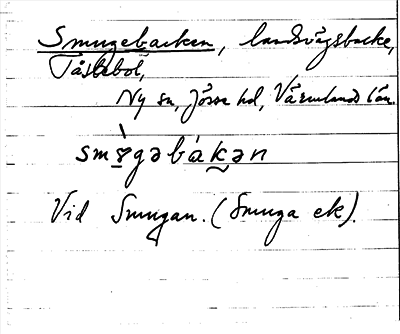 Smugebacken, landsvägsbacke,
Tåsebol,
Ny sn, Jösse hd, Värmlands län.
smɤ̀gəbákən
Vid Smugan. (Smuga ek).